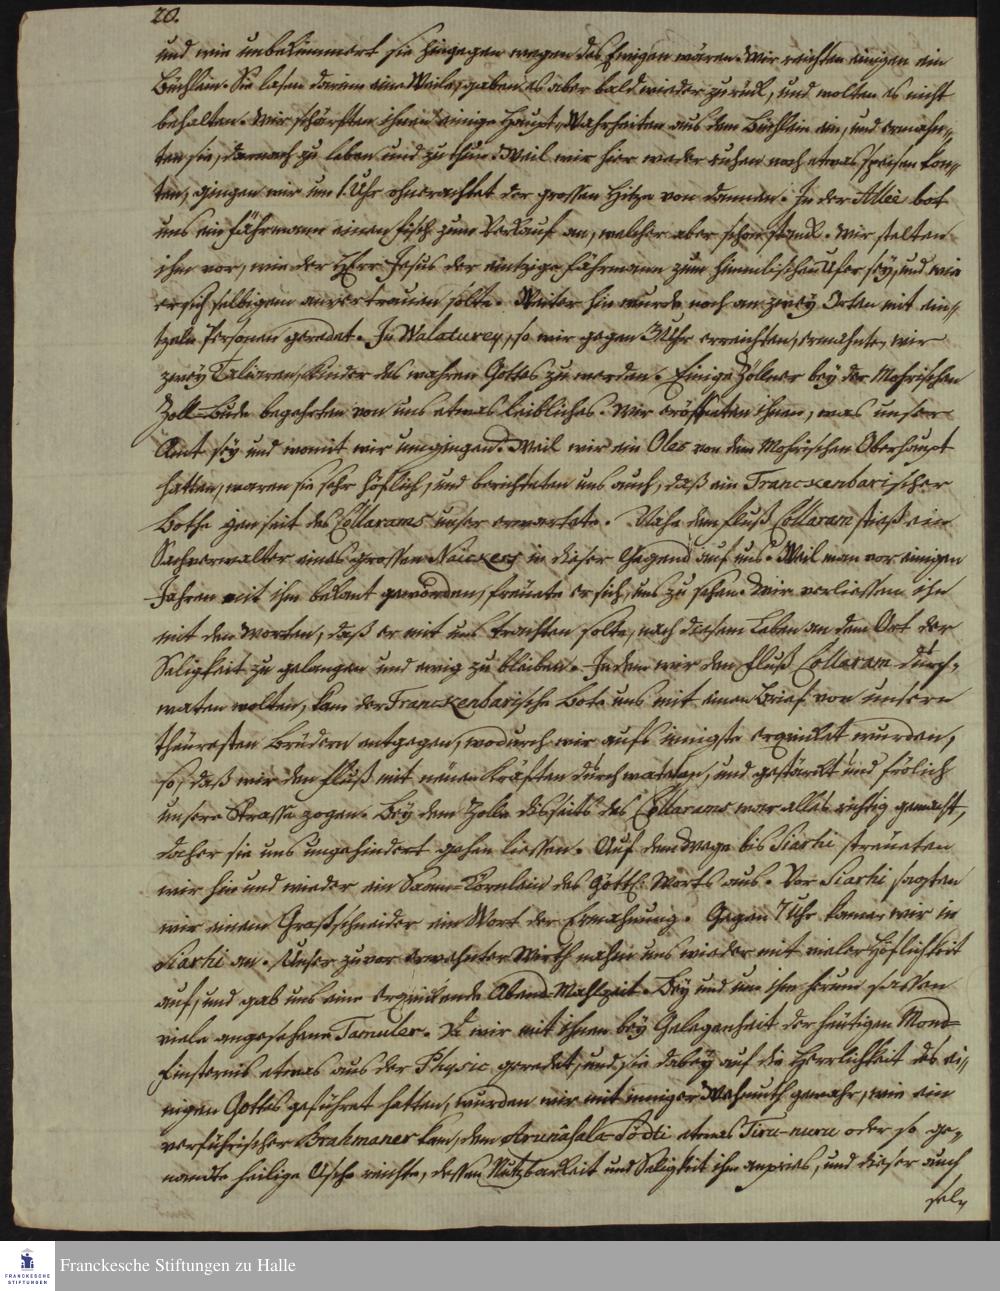 20.
und wie unbekümmert sie hingegen wegen des Ewigen wären. Wir reichten einigen ein
Büchlein. Sie lasen darin eine Weile, gaben es aber bald wieder zurück, und wolten es nicht
behalten. Wir schärften ihnen einige Haupt-Wahrheiten aus dem Büchlein ein, und ermahn-
ten sie, darnach zu leben und zu thun. Weil wir hier weder ruhen noch etwas speisen kon-
ten, gingen wir um 1. Uhr ohnerachtet der grossen Hitze von dannen. In der Allee bot
uns ein Fährmann einen Fisch zum Verkauf an, welcher aber schon stank. Wir stelten
ihm vor, wie der Herr Jesus der eintzige Fährmann zum himmlischen Ufer sey, und wie
er sich selbigem anvertrauen solte. Weiter hin wurde noch an zwey Orten mit ein-
tzeln Personen geredet. In Walaturey, so wir gegen 3 Uhr erreichten, ermahnten wir
zwey Taliaren, Kinder des wahren Gottes zu werden. Einige Zöllner bey der Mohrischen
Zoll-Bude begehrten von uns etwas leibliches. Wir eröffneten ihnen, was unser
Amt sey und womit wir umgingen. Weil wir ein Oles von dem Mohrischen Oberhaupt
hatten, waren sie sehr höflich, und berichteten uns auch, daß ein Franckenbarischer
Bothe jenseit des Collarams unser erwartete. Nahe dem Fluß Collaram stieß ein
Sachverwalter eines grossen Naickers in dieser Gegend auf uns. Weil man vor einigen
Jahren mit ihm bekant geworden, freuete er sich, uns zu sehen. Wir verliessen ihn
mit den Worten, daß er mit uns trachten solte, nach diesem Leben an den Ort der
Seligkeit zu gelangen und ewig zu bleiben. Indem wir den Fluß Collaram durch-
waten wolten, kam der Franckenbarische Bote uns mit einem Brief von unsern
theuresten Brüdern entgegen, wodurch wir aufs innigste erquicket wurden,
so, daß wir den Fluß mit neuen Kräften durchwateten, und gestärckt und frölich
unsere Strasse zogen. Bey dem Zolle disseits des Collarams war alles richtig gemacht,
daher sie uns ungehindert gehen liessen. Auf dem Wege bis Siarhi streueten
wir hin und wieder ein Saam-Körnlein des Göttl. Worts aus. Vor Siarhi sagten
wir einem Graßschneider ein Wort der Ermahnung. Gegen 7 Uhr kamen wir in
Siarhi an. Unser zuvor erwehnter Wirth nahm uns wieder mit vieler Höflichkeit
auf, und gab uns eine erquickende Abend-Mahlzeit. Bey und um ihm herum sassen
viele angesehene Tamuler. Da wir mit ihnen bey Gelegenheit der heutigen Mond-
Finsternis etwas aus der Physic geredet, und sie dabey auf die Herrlichkeit des ei-
nigen Gottes geführet hatten, wurden wir mit inniger Wehmuth gewahr, wie ein
verführischer Brahmaner kam, dem Arunâsala-Tôdti etwas Tiru-nuru oder so ge-
nandte heilige Asche reichte, dessen Nutzbarkeit und Seligkeit ihm anpries, und dieser auch
sel-
Franckesche Stiftungen zu Halle
FRANCKESCHE
STIFTUNGEN